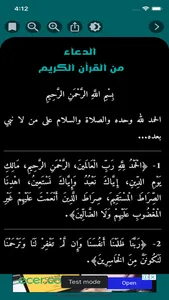 4:12
الدعاء
من القرآن الكريم
بِسْمِ اللَّهِ الرَّحْمَنِ الرَّحِيمِ
الحمد لله وحده والصلاة والسلام على من لا نبي
بعده...
1 - ﴿الْحَمْدُ لِلَّهِ رَبِّ الْعَالَمِينَ، الرَّحْمَنِ الرَّحِيمِ، مَالِكِ
يَوْمِ الدِّينِ، إِيَّاكَ نَعْبُدُ وَإِيَّاكَ نَسْتَعِينُ، اهْدِنَا
الصِّرَاطَ الْمُسْتَقِيمَ، صِرَاطَ الَّذِينَ أَنْعَمْتَ عَلَيْهِمْ غَيْرِ
الْمَغْضُوبِ عَلَيْهِمْ وَلَا الضَّالِّينَ﴾.
2 - ﴿رَبَّنَا ظَلَمْنَا أَنْفُسَنَا وَإِنْ لَمْ تَغْفِرْ لَنَا وَتَرْحَمْنَا
لَنَكُونَنَّ مِنَ الْخَاسِرِينَ﴾.
Test mode
Open